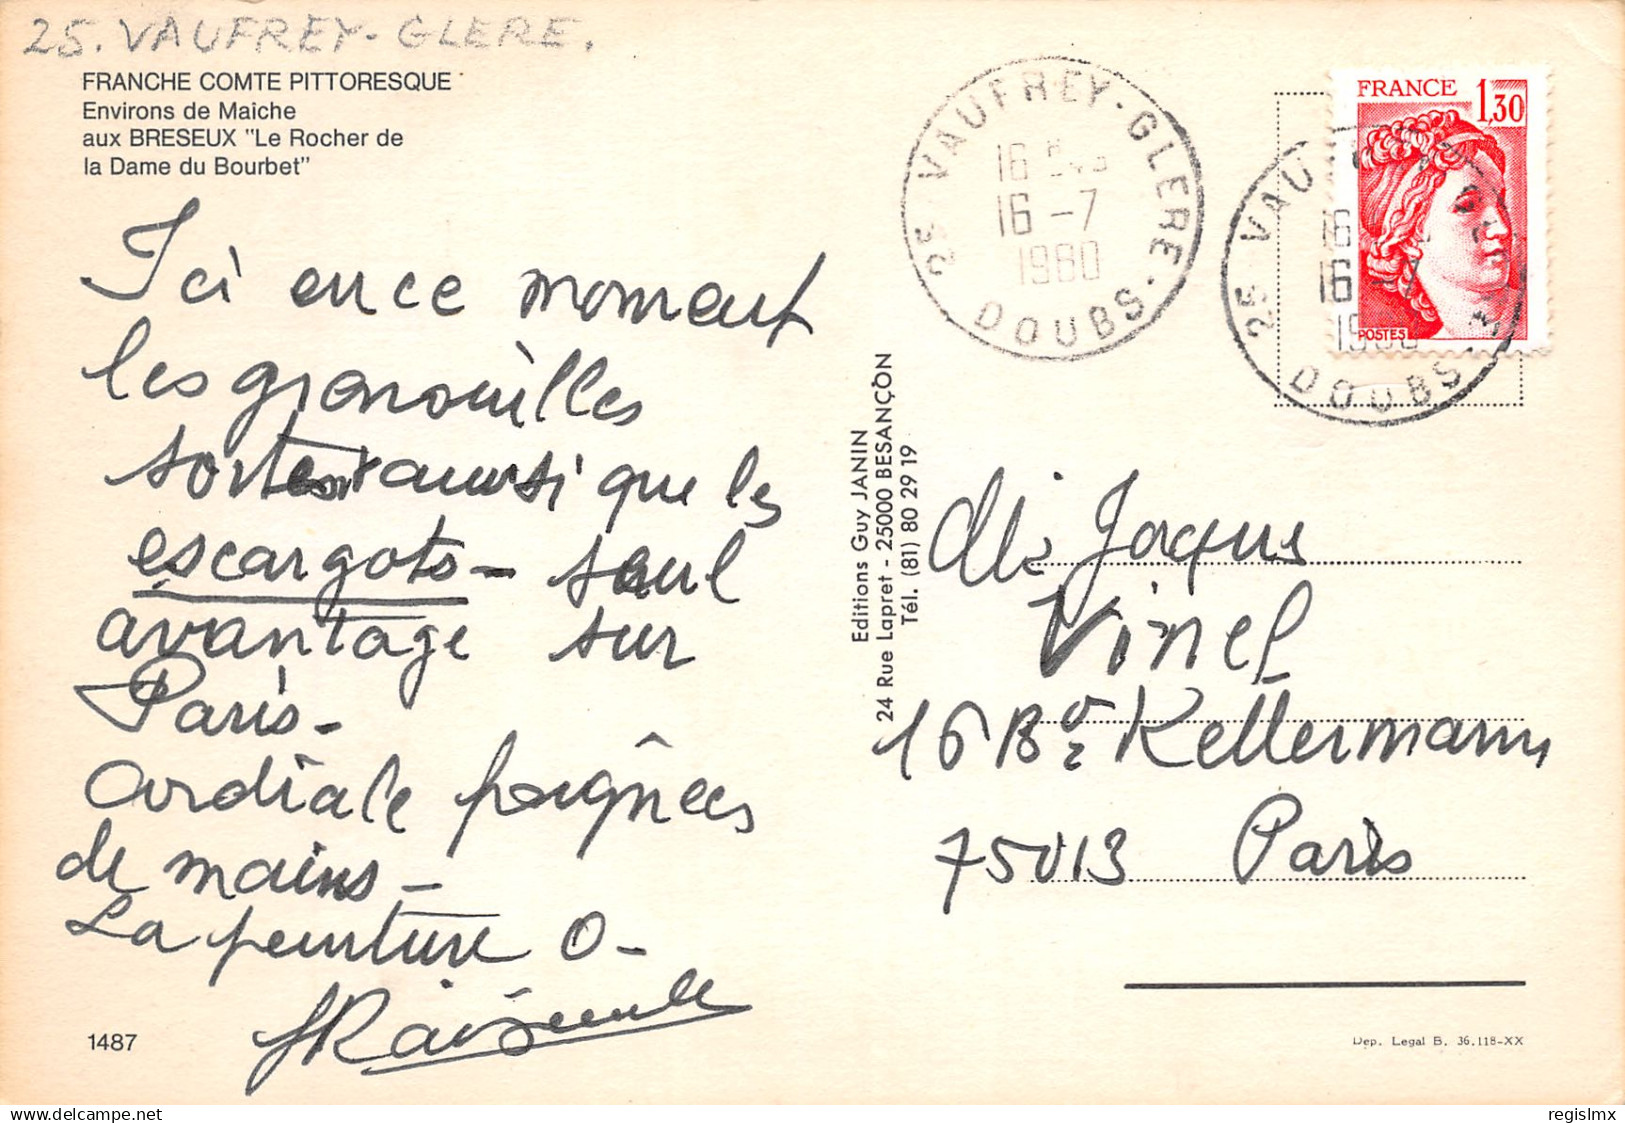 25. VAUFREY-GLERE.
FRANCHE COMTE PITTORESQUE
Environs de Maîche
aux BRESEUX "Le Rocher de
la Dame du Bourbet"
Ici en ce moment
les grenouilles
sortent aussi que les
escargots - seul
avantage sur
Paris -
Cordiale poignées
de mains -
La peinture O -
1487
Editions Guy JANIN
24 Rue Lapret - 25000 BESANÇON
Tél. (81) 80 29 19
25 VAUFREY-GLERE
16 H
16 -7
1980
DOUBS
FRANCE 1,30
POSTES
25 VAU
16
16 -7
1980
DOUBS
Jaques
Vinel
16 Bd Kellermann
75013 Paris
Dep. Legal B. 36.118-XX
regislmx